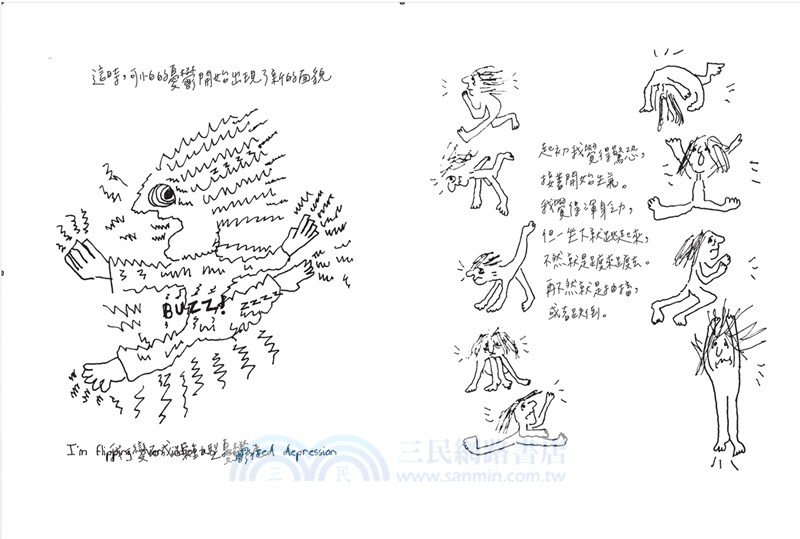 這時,可怕的憂鬱開始出現了新的面貌
BUZZ!
zzzz
I'm flipping depression
起初我覺得驚恐,
接著開始生氣。
我覺得渾身
但一坐下就跳起來,
不然就是踱來踱去。
再不然就是抽搐,
或者跌倒。
三民
三民網路書店
www.sanmin.com.tw